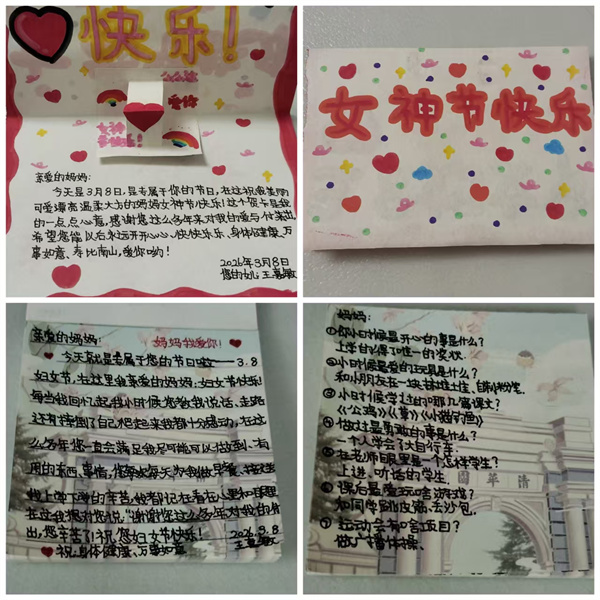 快乐!
爱你
女神
亲爱的妈妈:
今天是3月8日,是专属于你的节日,在这祝我美丽
可爱漂亮温柔大方的妈妈女神节快乐!这个贺卡是我
的一点点心意,感谢您这么多年来对我的爱与付出,
希望您能以后永远开开心心、快快乐乐、身体健康、万
事如意、寿比南山,爱你哟!
2026年3月8日
您的女儿:王嘉敏
女神节快乐
亲爱的妈妈: 妈妈我爱你!
今天就是专属于您的节日啦——3.8
妇女节,在这里我亲爱的妈妈:妇女节快乐!
每当我回忆起我小时候您教我说话、走路
还有摔倒了自己想起来我都十分感动,在这
么多年您一直会满足我尽可能可以做到、有
用的东西、事情,您每天为我做早餐、接送
我上学下学的辛苦,我都记在看在心里和眼里
在这我想对您说:“谢谢您这么多年对我的付
出,您辛苦了!祝您妇女节快乐!
祝:身体健康、万事如意 2026.3.8
妈妈:
①你小时候最开心的事是什么?
上学时得了唯一的奖状.
②小时候最爱的玩具是什么?
和小朋友在一块
③小时候学过的哪几篇课文?
《公鸡》《小猫钓鱼》
④做过最勇敢的事是什么?
一个人学会了大自行车.
⑤在老师眼里是一个怎样学生?
上进、听话的学生.
⑥课后最爱玩啥游戏?
和同学跳皮筋、丢沙包.
⑦运动会有啥项目?
做广播体操.
清华园